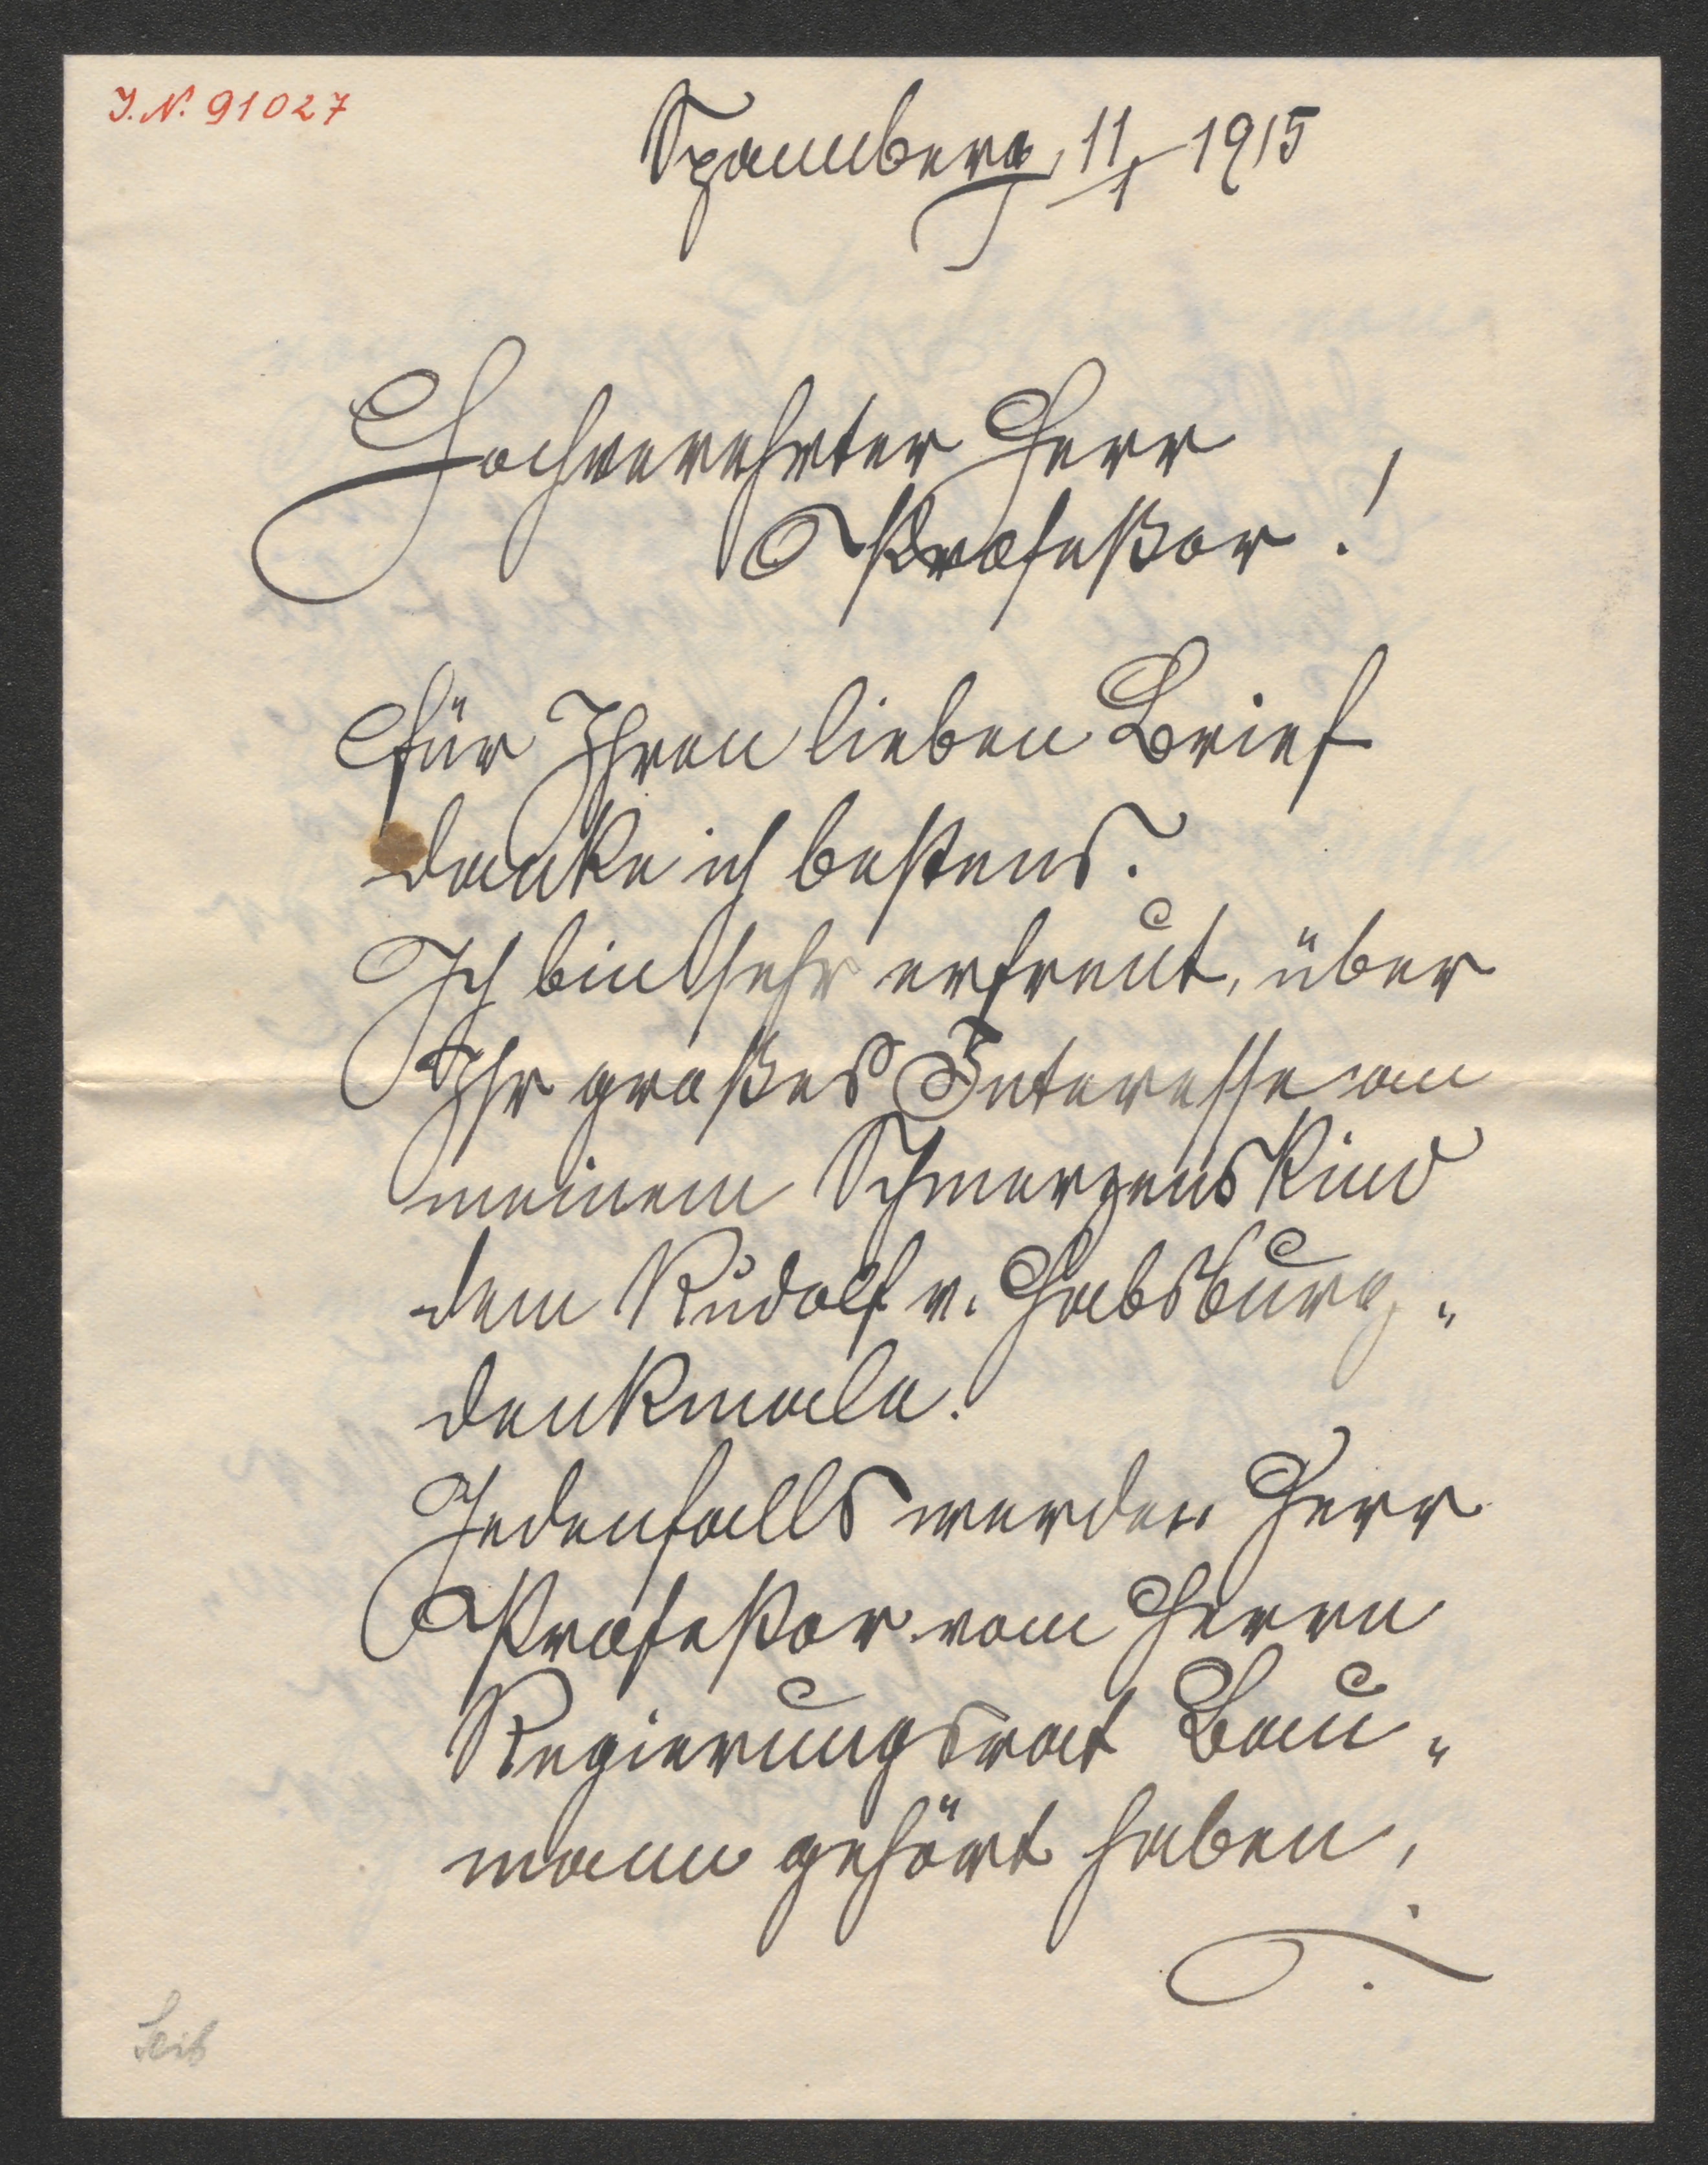 J. N. 91027
Spannberg, 11/1 1915
Hochverehrter Herr
Profeßor!
Für Ihren lieben Brief
danke ich bestens.
Ich bin sehr erfreut, über
Ihr großes Interesse am
meinem Schmerzenskind
dem Rudolf v. Habsburg„
denkmale.
Jedenfalls werden Herr
Profeßor vom Herrn
Regierungsrat Bau„
mann gehört haben,
./.
Seib